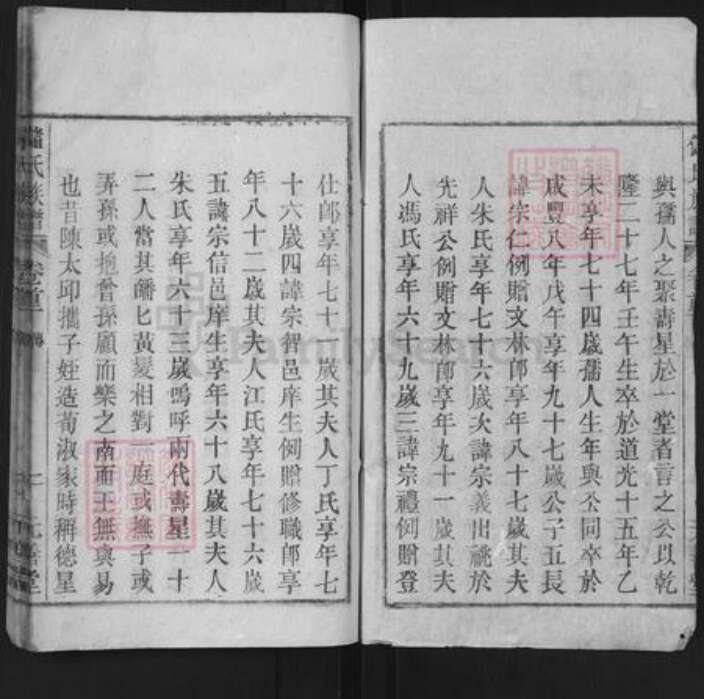 與孺人之聚壽星於一堂者言之公以乾
隆二十七年壬午生卒於道光十五年乙
未享年七十四歲孺人生年與公同卒於
咸豐八年戊午享年九十七歲公子五長
諱宗仁例贈文林郎享年八十七歲其夫
人朱氏享年七十六歲次諱宗義出祧於
先祥公例贈文林郎享年九十一歲其夫
人馮氏享年六十九歲三諱宗禮例贈登
仕郎享年七十一歲其夫人丁氏享年七
十六歲四諱宗智邑庠生例贈修職郎享
年八十二歲其夫人江氏享年七十六歲
五諱宗信邑庠生享年六十八歲其夫人
朱氏享年六十三歲嗚呼兩代壽星一十
二人當其皤皤黃髮相對一庭或撫子或
弄孫或抱曾孫顧而樂之南面王無與易
也昔陳太邱攜子姪造荀淑家時稱德星
氏族譜
卷首
傳
元善堂
FamilySearch